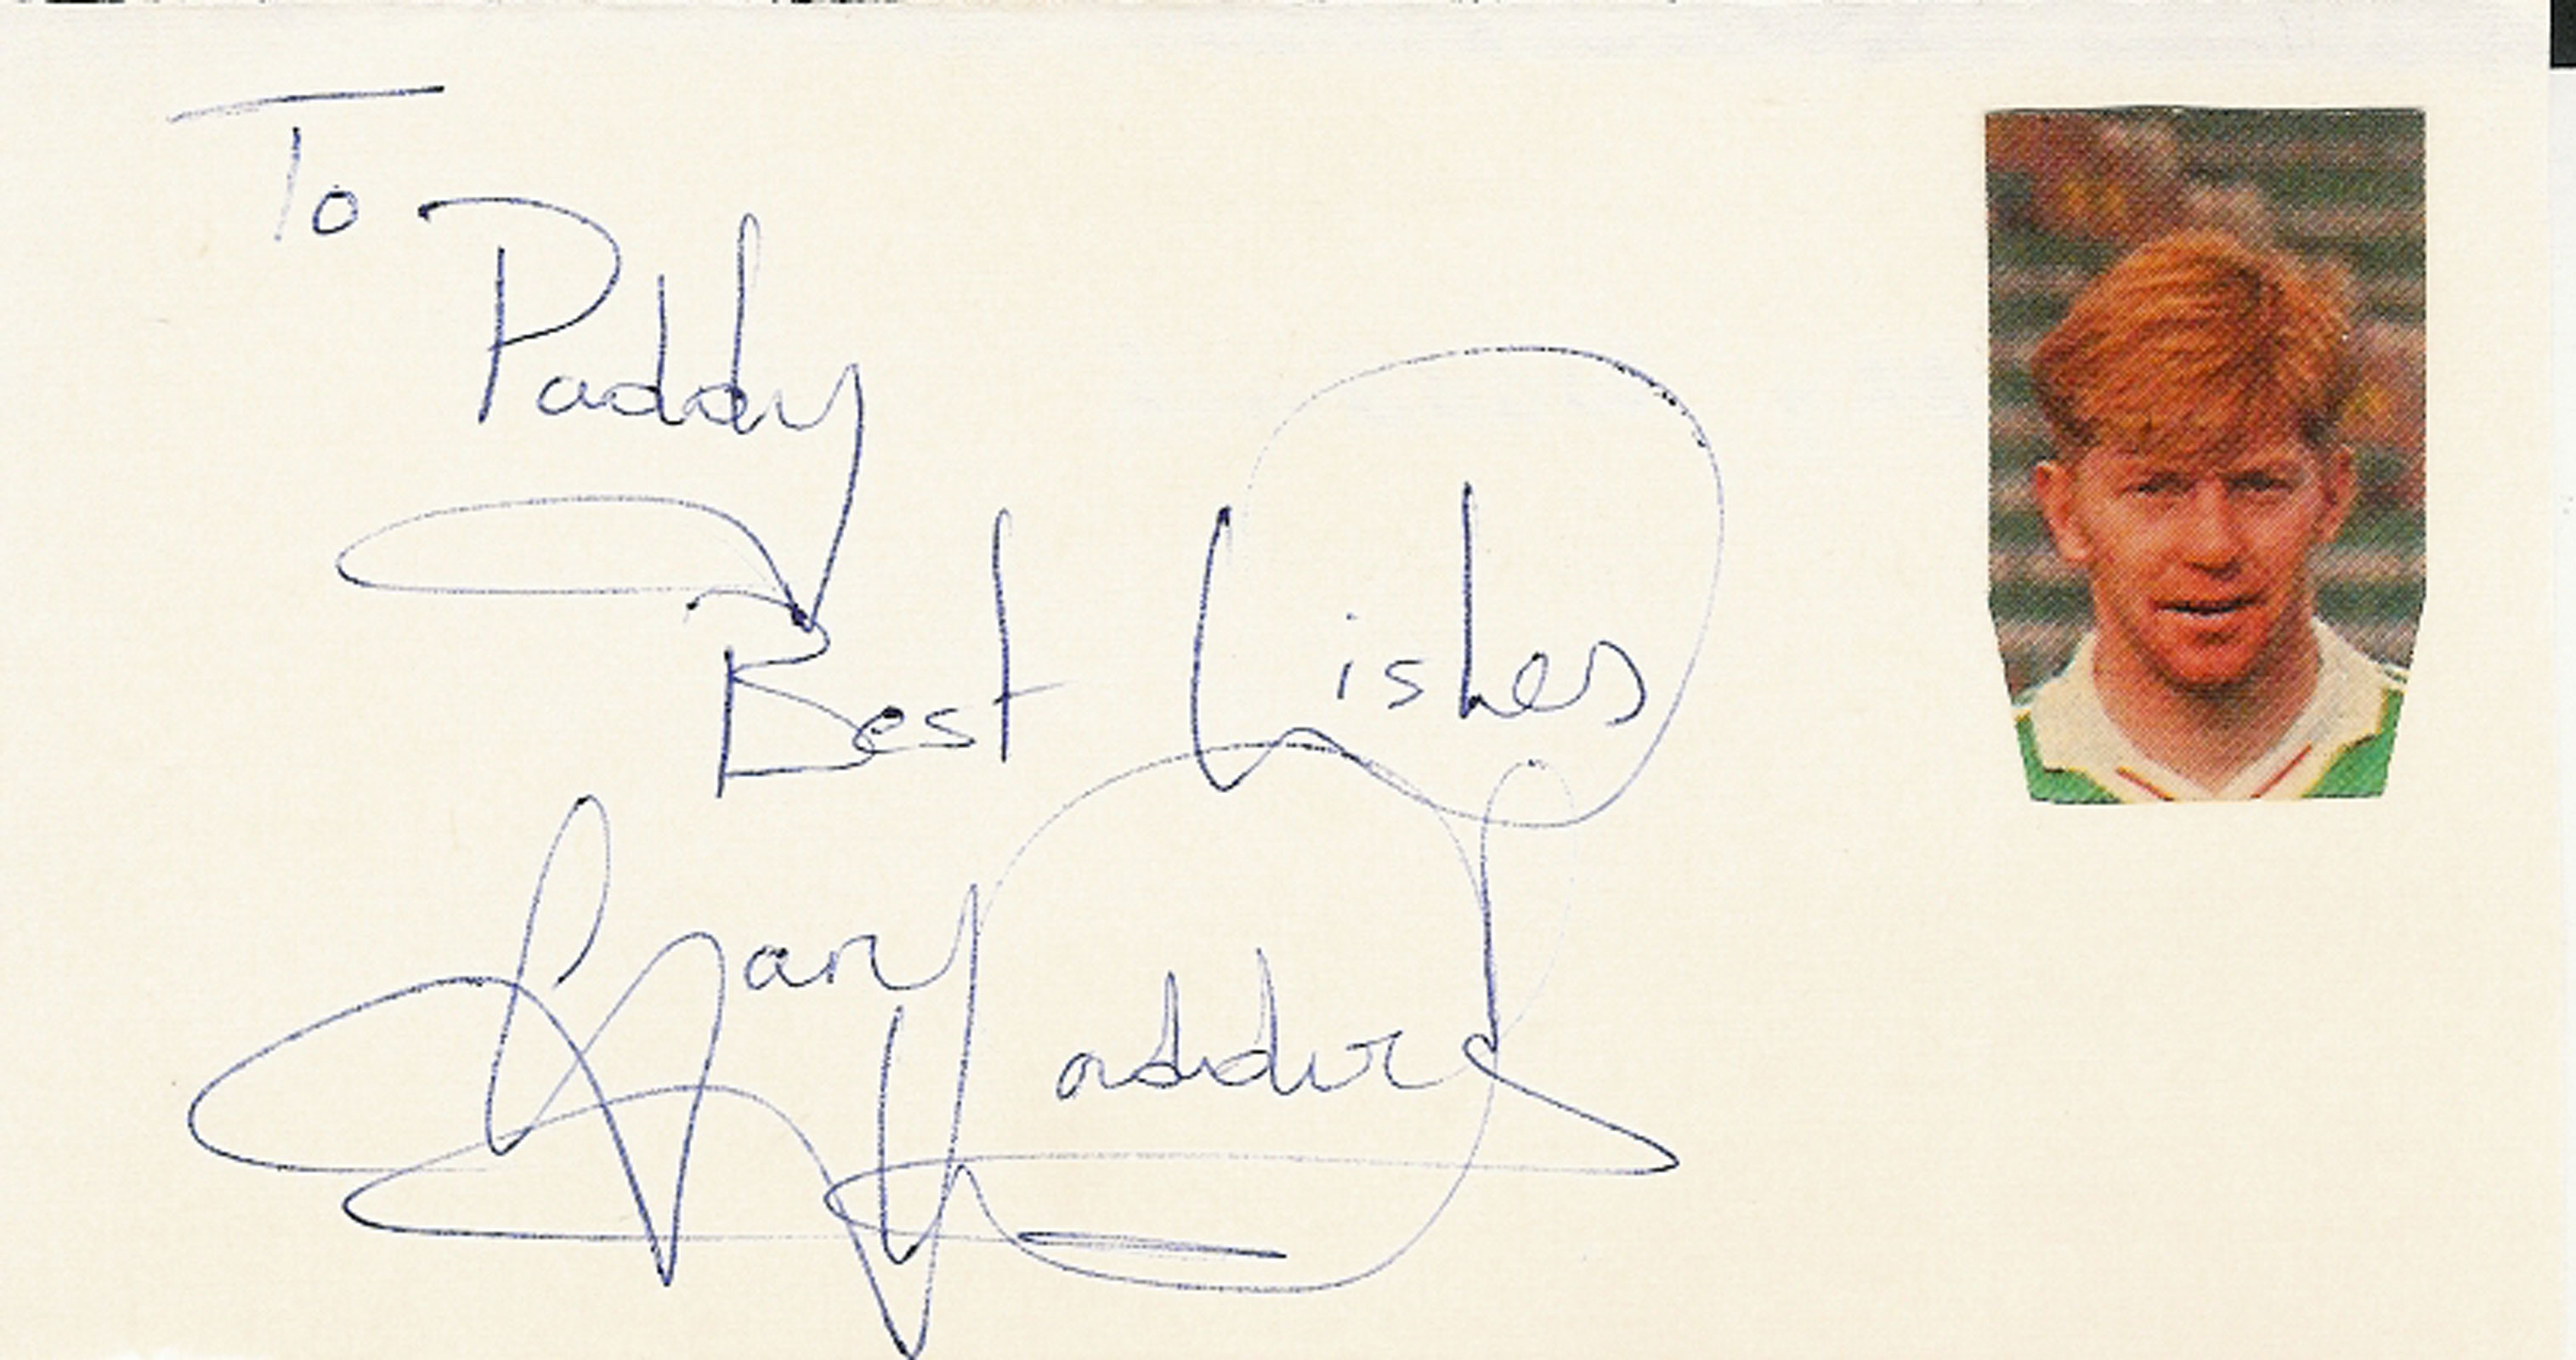 To
Paddy
Best Wishes
Gary Waddock